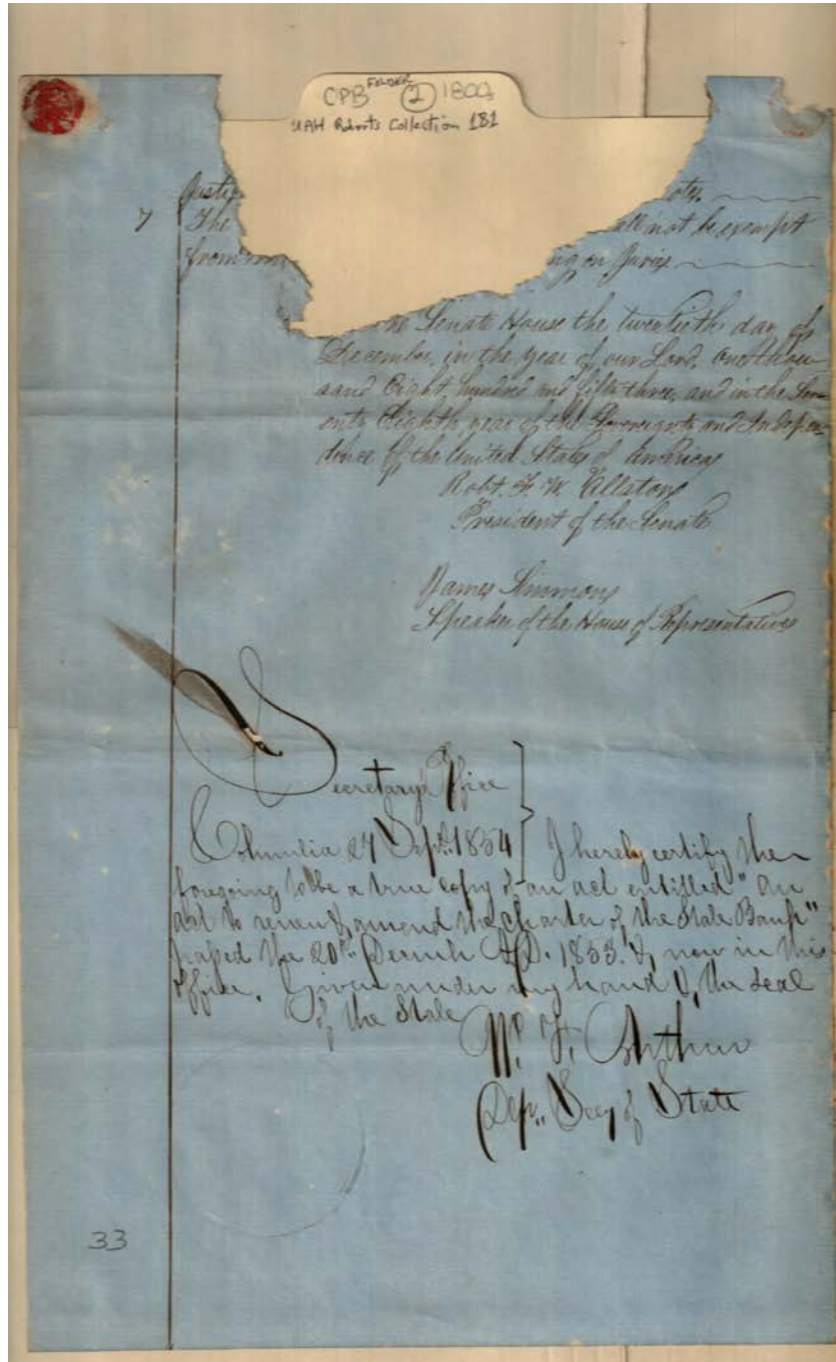 CPB FOLDER 1 1800s
UAH Roberts Collection 181
otes.
7 The all not be exempt
from ng on Juries
the Senate House the twentieth day of
December, in the year of our Lord, One thou-
sand Eight hundred and fifty three, and in the Sev-
enty Eighth year of the Sovereignty and Indepen-
dence of the United States of America
Robt. F. W. Allston
President of the Senate
James Simmons
Speaker of the House of Representatives
Secretary's Office
Columbia 27 Sept. 1854 } I hereby certify the
foregoing to be a true copy of an act entitled "An
act to renew & amend the charter of the State Bank"
passed the 20th. Decemb A.D. 1853. & now in this
office. Given under my hand & the seal
of the State
W. F. Arthur
Dep. Secy of State
33